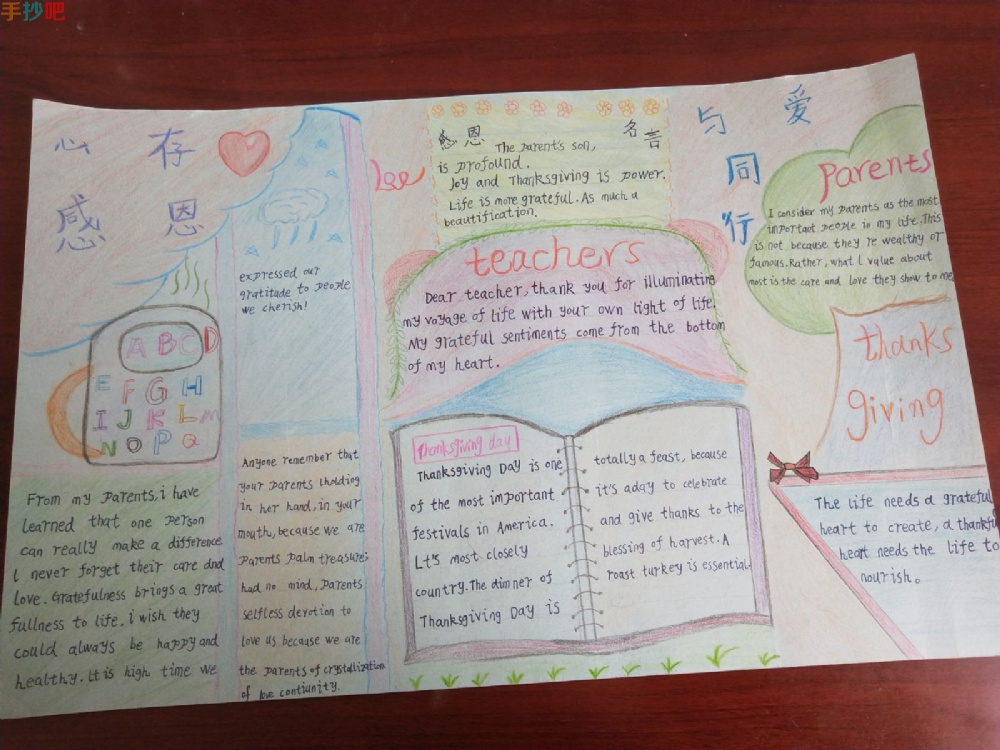 手抄吧
心存
感恩
expressed our
gratitude to people
we cherish!
A B C D
E F G H
I J K L M
N O P Q
From my parents, i have
learned that one person
can really make a difference
l never forget their care and
love. Gratefulness brings a great
fullness to life. i wish they
could always be happy and
healthy. it is high time we
Anyone remember that
your parents lholding
in her hand, in your
mouth, because we are
parents palm treasure;
had no mind, Parents
selfless devotion to
love us because we are
the parents of crystallization
of love contiunity.
感恩 名言
The parent's son,
is profound.
Joy and Thanksgiving is power.
Life is more grateful. As much a
beautification.
teachers
Dear teacher, thank you for illuminating
my voyage of life with your own light of life.
My grateful sentiments come from the bottom
of my heart.
Thanksgiving day
Thanksgiving Day is one
of the most important
festivals in America.
Lt's most closely
country. The dinner of
Thanksgiving Day is
totally a feast, because
it's aday to celebrate
and give thanks to the
blessing of harvest. A
roast turkey is essential.
与爱
同
行
parents
I consider my parents as the most
important people in my life. This
is not because they're wealthy or
famous. Rather, what l value about
most is the care and love they show to me
thanks
giving
The life needs a grateful
heart to create, a thankful
heart needs the life to
nourish。